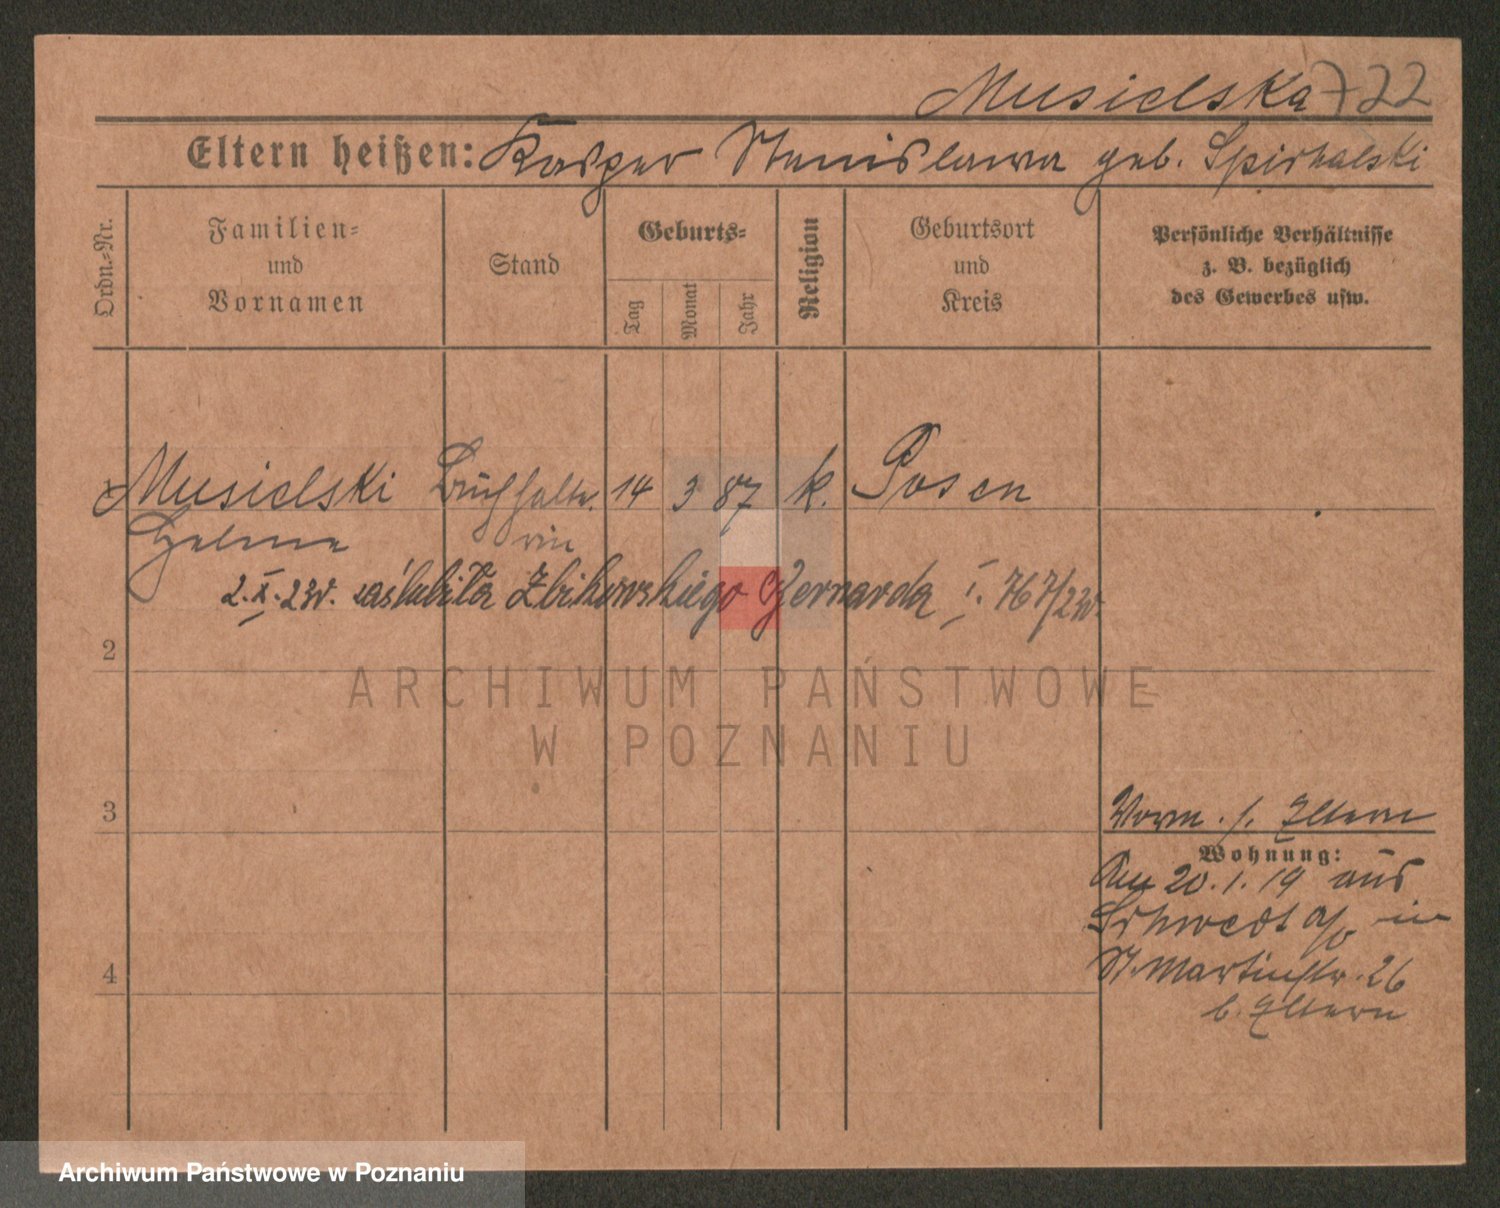 Musielska 722
Eltern heißen: Kasper Stanislawa geb. Spishalski
Ordn.-Nr.
Familien- und Vornamen
Stand
Geburts-
Tag
Monat
Jahr
Religion
Geburtsort und Kreis
Persönliche Verhältnisse z. B. bezüglich des Gewerbes usw.
Musielski Buchhalte- 14 3 87 k. Posen
rin
2.X.23r. zaślubiła Zbikowskiego Bernarda I. 767/23r.
2
3
4
Worm. s. Eltern
Wohnung:
Am 20.1.19 aus
Schwedt a/O in
St. Martinstr. 26
b. Eltern
ARCHIWUM PAŃSTWOWE
W POZNANIU
Archiwum Państwowe w Poznaniu